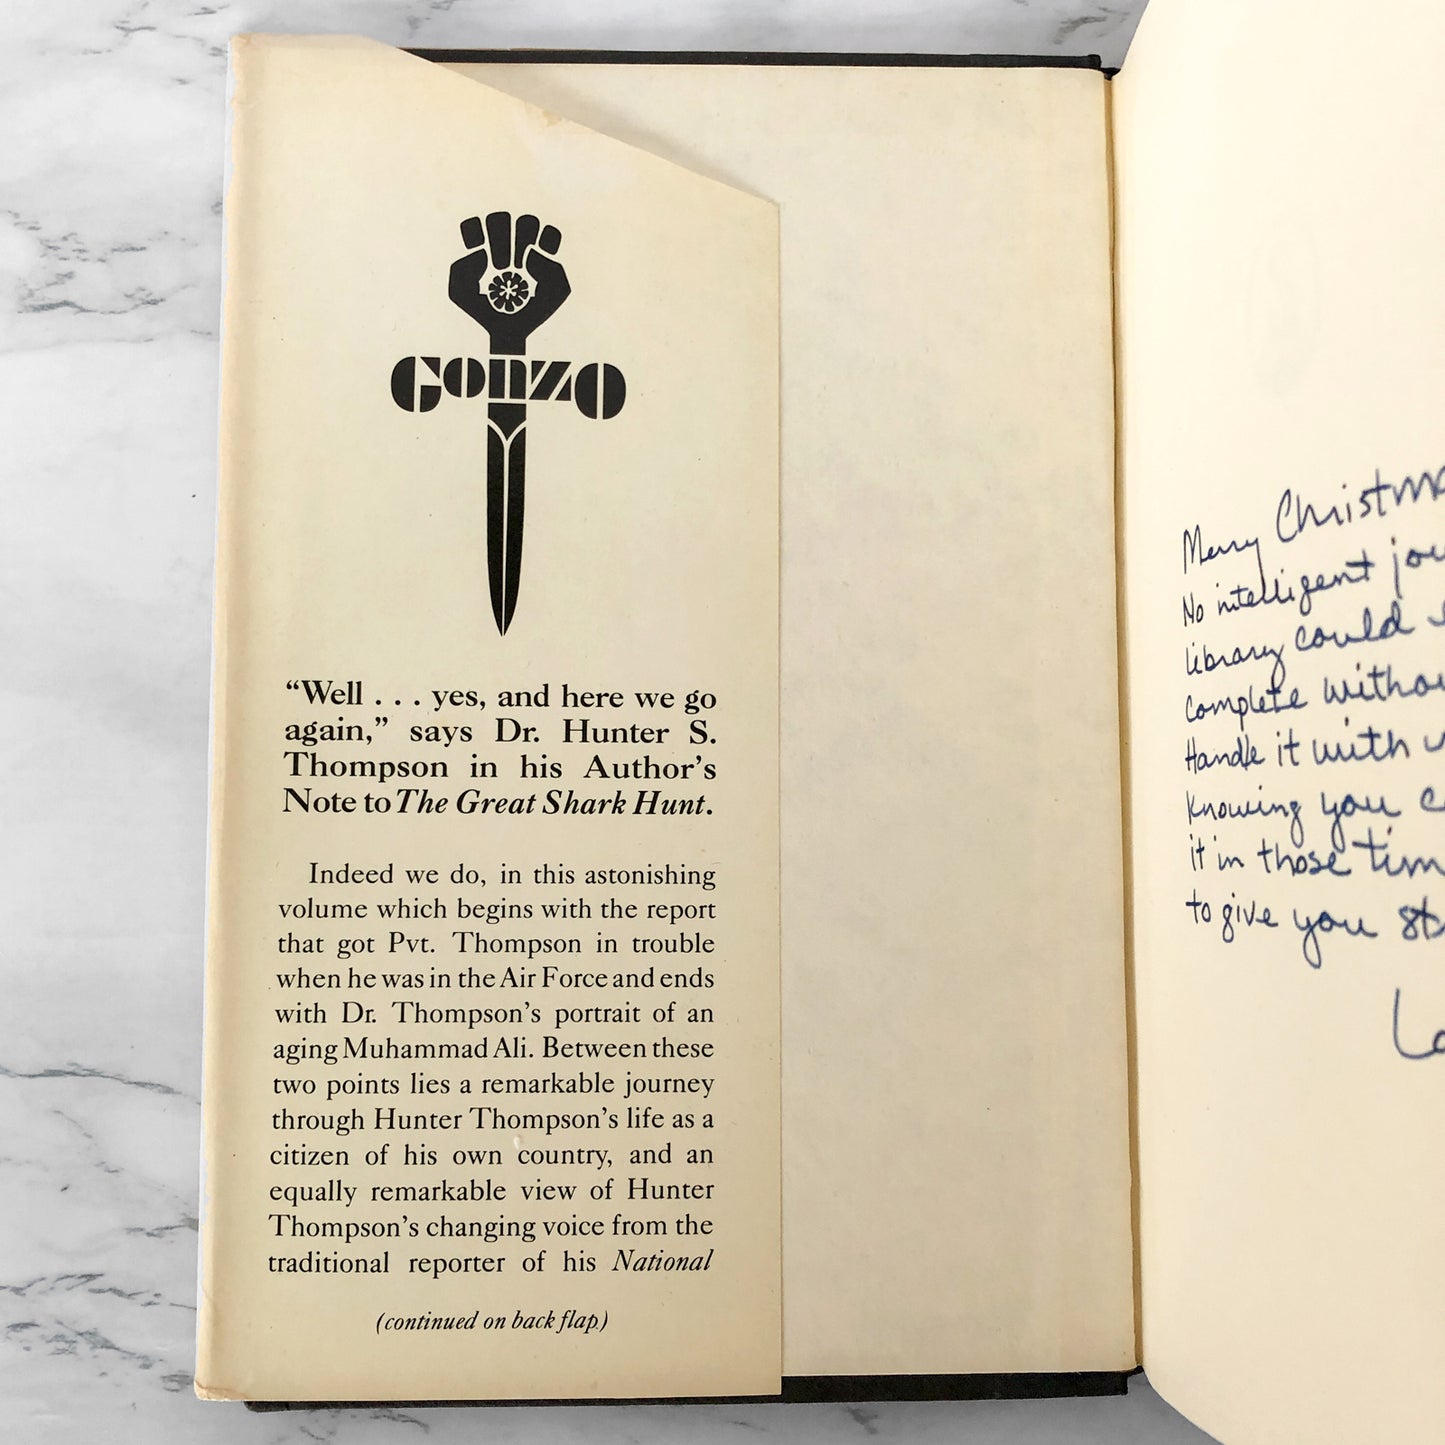 GONZO
“Well . . . yes, and here we go
again,” says Dr. Hunter S.
Thompson in his Author’s
Note to The Great Shark Hunt.
Indeed we do, in this astonishing
volume which begins with the report
that got Pvt. Thompson in trouble
when he was in the Air Force and ends
with Dr. Thompson’s portrait of an
aging Muhammad Ali. Between these
two points lies a remarkable journey
through Hunter Thompson’s life as a
citizen of his own country, and an
equally remarkable view of Hunter
Thompson’s changing voice from the
traditional reporter of his National
(continued on back flap)
Merry Christma
No intelligent jou
library could
complete withou
Handle it with
Knowing you c
it in those tim
to give you st